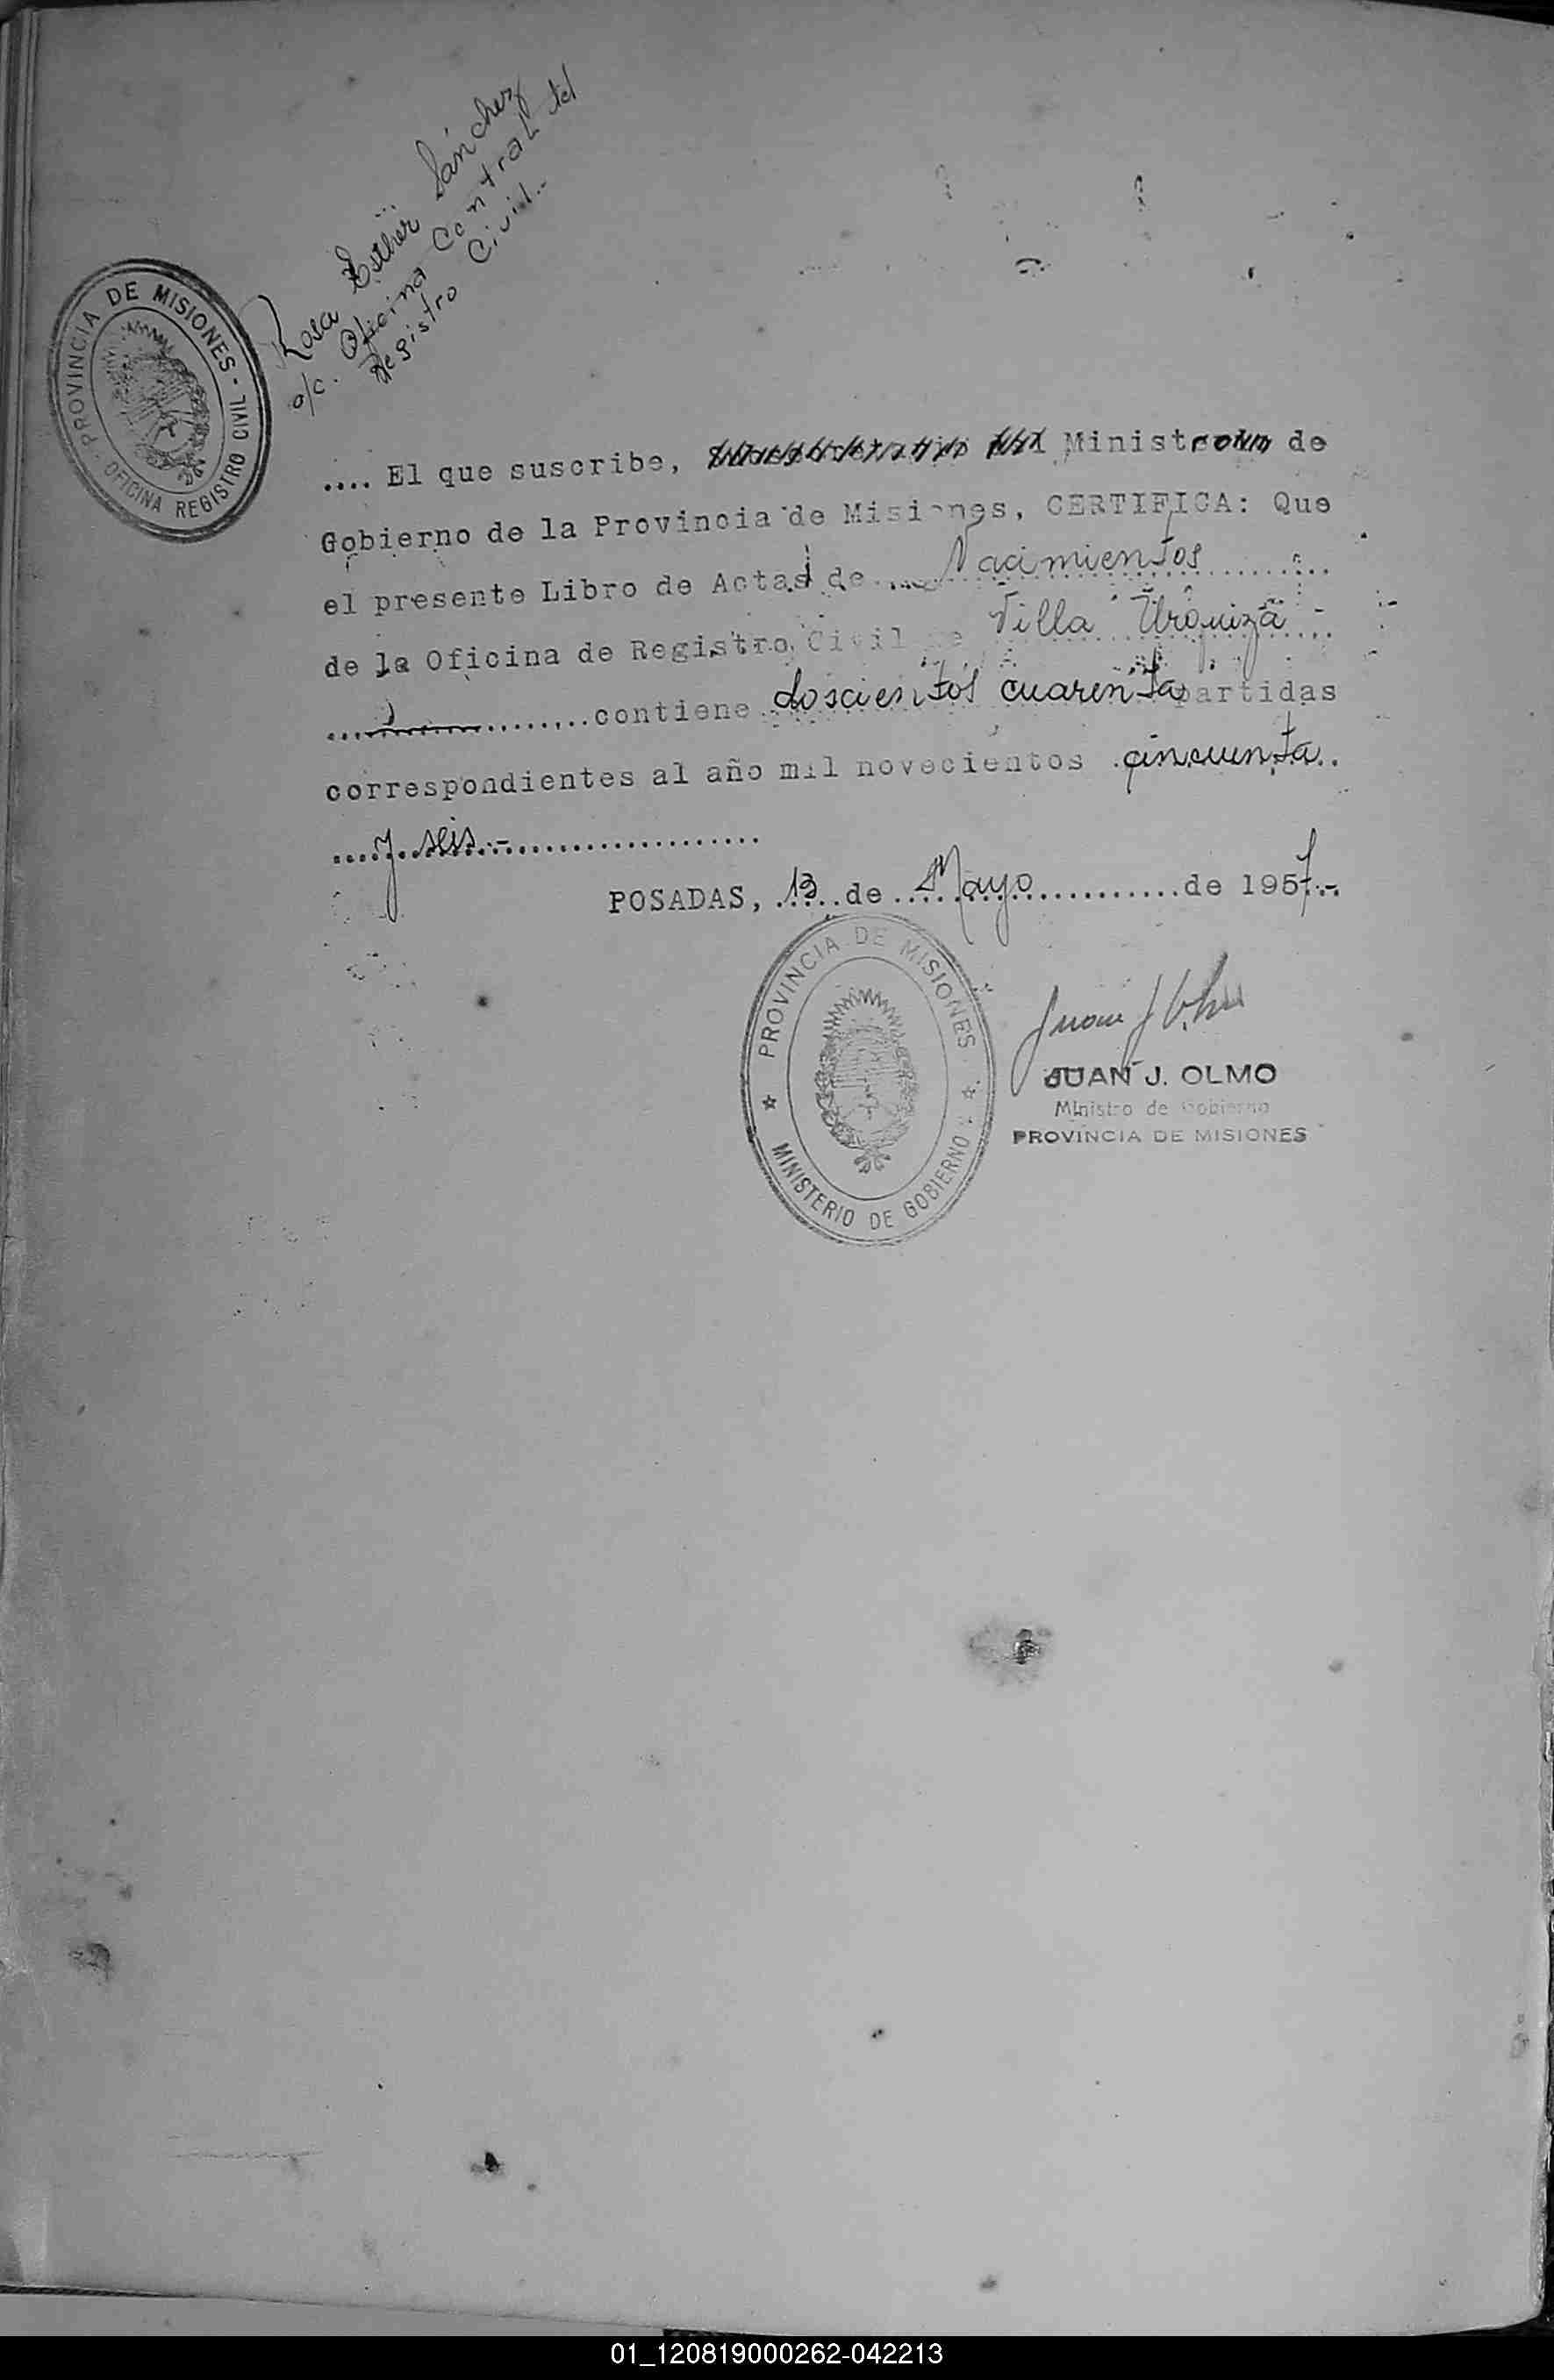 Rosa Esther Sánchez
o/c. Oficina Central del
Registro Civil..
PROVINCIA DE MISIONES - OFICINA REGISTRO CIVIL
.... El que suscribe, Ministro de
Gobierno de la Provincia de Misiones, CERTIFICA: Que
el presente Libro de Actas de Nacimientos
de la Oficina de Registro Civil de Villa Urquiza
contiene doscientos cuarenta partidas
correspondientes al año mil novecientos cincuenta
y seis.-
POSADAS, 13 de Mayo de 1957.-
PROVINCIA DE MISIONES
MINISTERIO DE GOBIERNO
JUAN J. OLMO
Ministro de Gobierno
PROVINCIA DE MISIONES
01_120819000262-042213